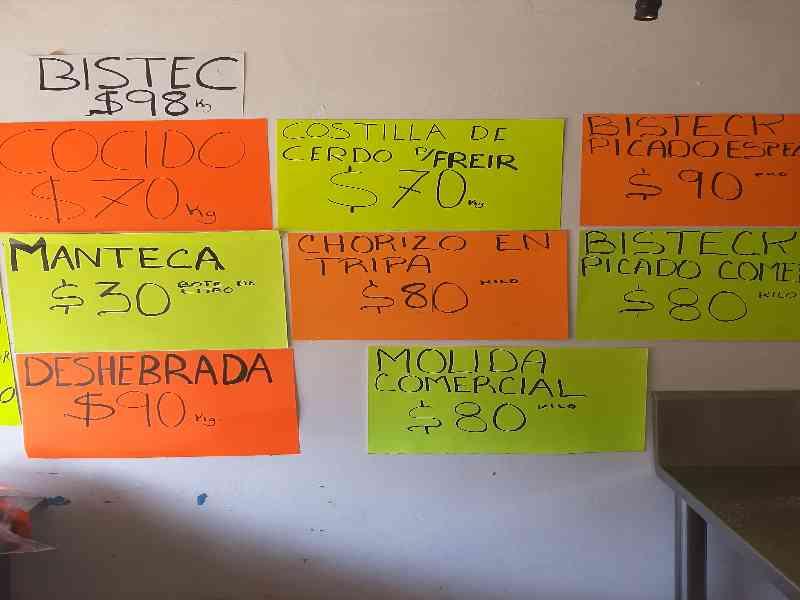 BISTEC
$98 Kg
COCIDO
$70 Kg
COSTILLA DE
CERDO P/FREIR
$70 Kg
BISTECK
PICADO ESPE
$90
MANTECA
$30
CHORIZO EN
TRIPA
$80 KILO
BISTECK
PICADO COME
$80 KILO
DESHEBRADA
$90 Kg.
MOLIDA
COMERCIAL
$80 KILO